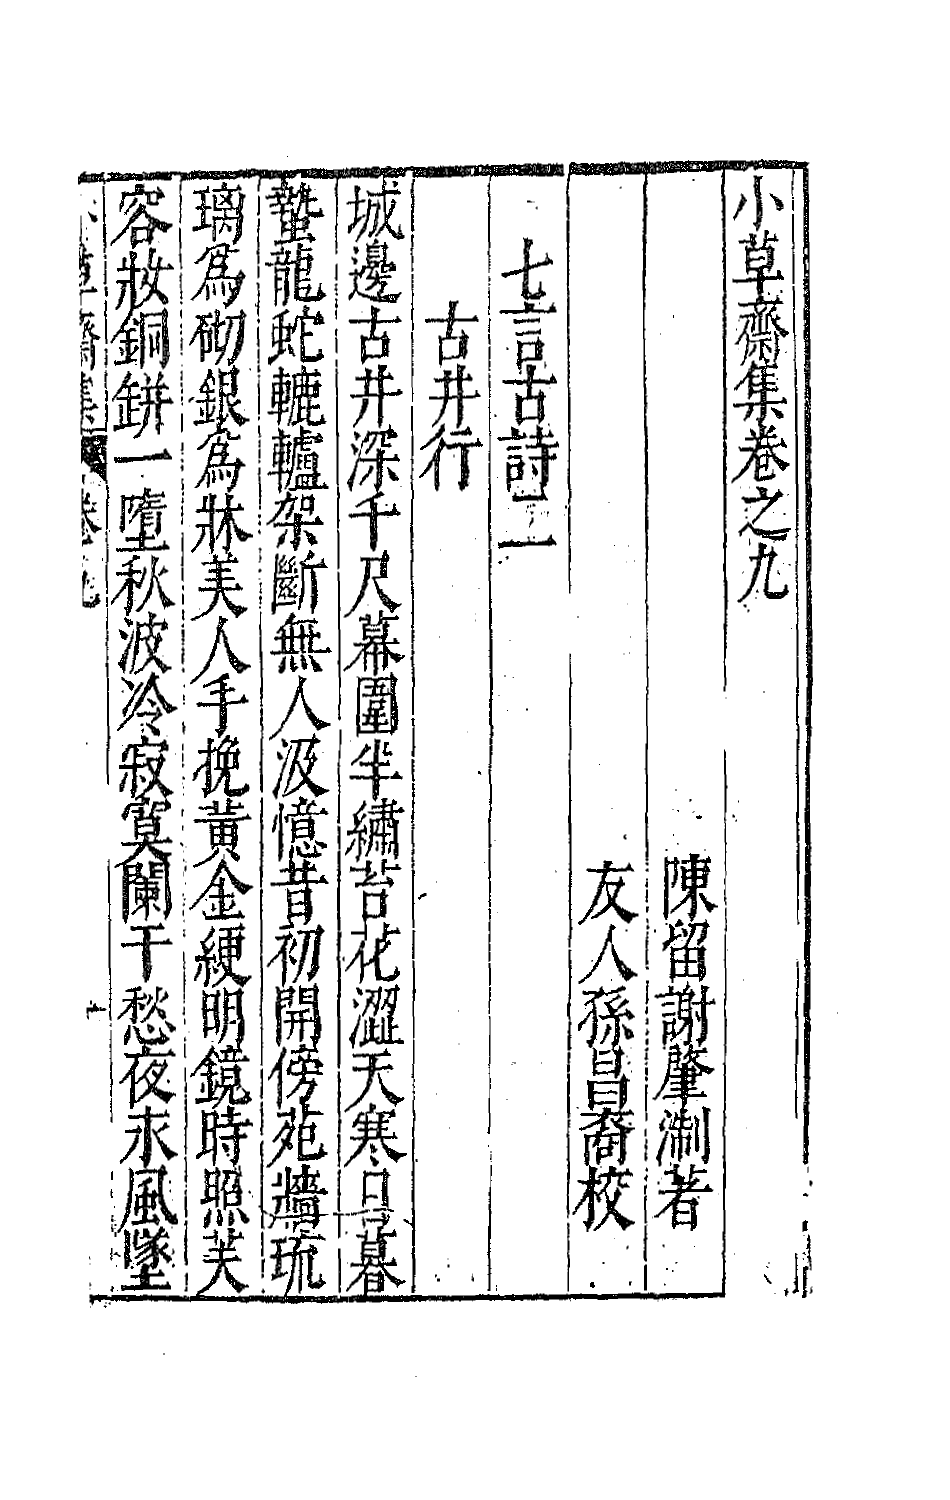 小草齋集卷之九
陳留謝肇淛著
友人孫昌裔校
七言古詩二
古井行
城邊古井深千尺幕圍半繡苔花澀天寒日暮
蟄龍蛇轆轤架斷無人汲憶昔初開傍苑牆琉
璃爲砌銀爲牀美人手挽黃金綆明鏡時照芙
容妝銅缾一墮秋波冷寂寞闌干愁夜永風墜
小草齋集 卷九